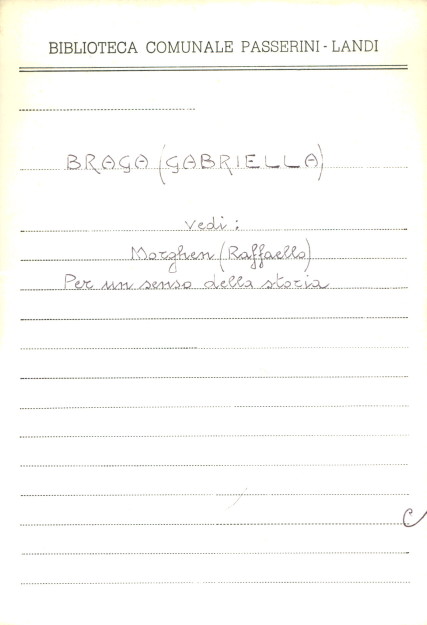 BIBLIOTECA COMUNALE PASSERINI-LANDI
BRAGA (GABRIELLA)
vedi:
Morghen (Raffaello)
Per un senso della storia
C